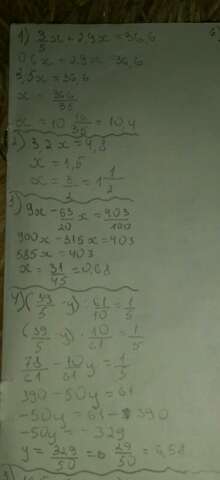 1) 3/5 x + 2,9x = 36,6
0,6x + 2,9x = 36,6
3,5x = 36,6
x = 366/35
x = 10 16/35 = 10,4
2) 3,2x = 4,8
x = 1,5
x = 3/2 = 1 1/2
3) 9x - 63/20 x = 403/100
900x - 315x = 403
585x = 403
x = 31/45 = 0,68
4) (39/5 - y) : 61/10 = 1/5
(39/5 - y) · 10/61 = 1/5
78/61 - 10/61 y = 1/5
390 - 50y = 61
-50y = 61 - 390
-50y = -329
y = 329/50 = 6 29/50 = 6,58